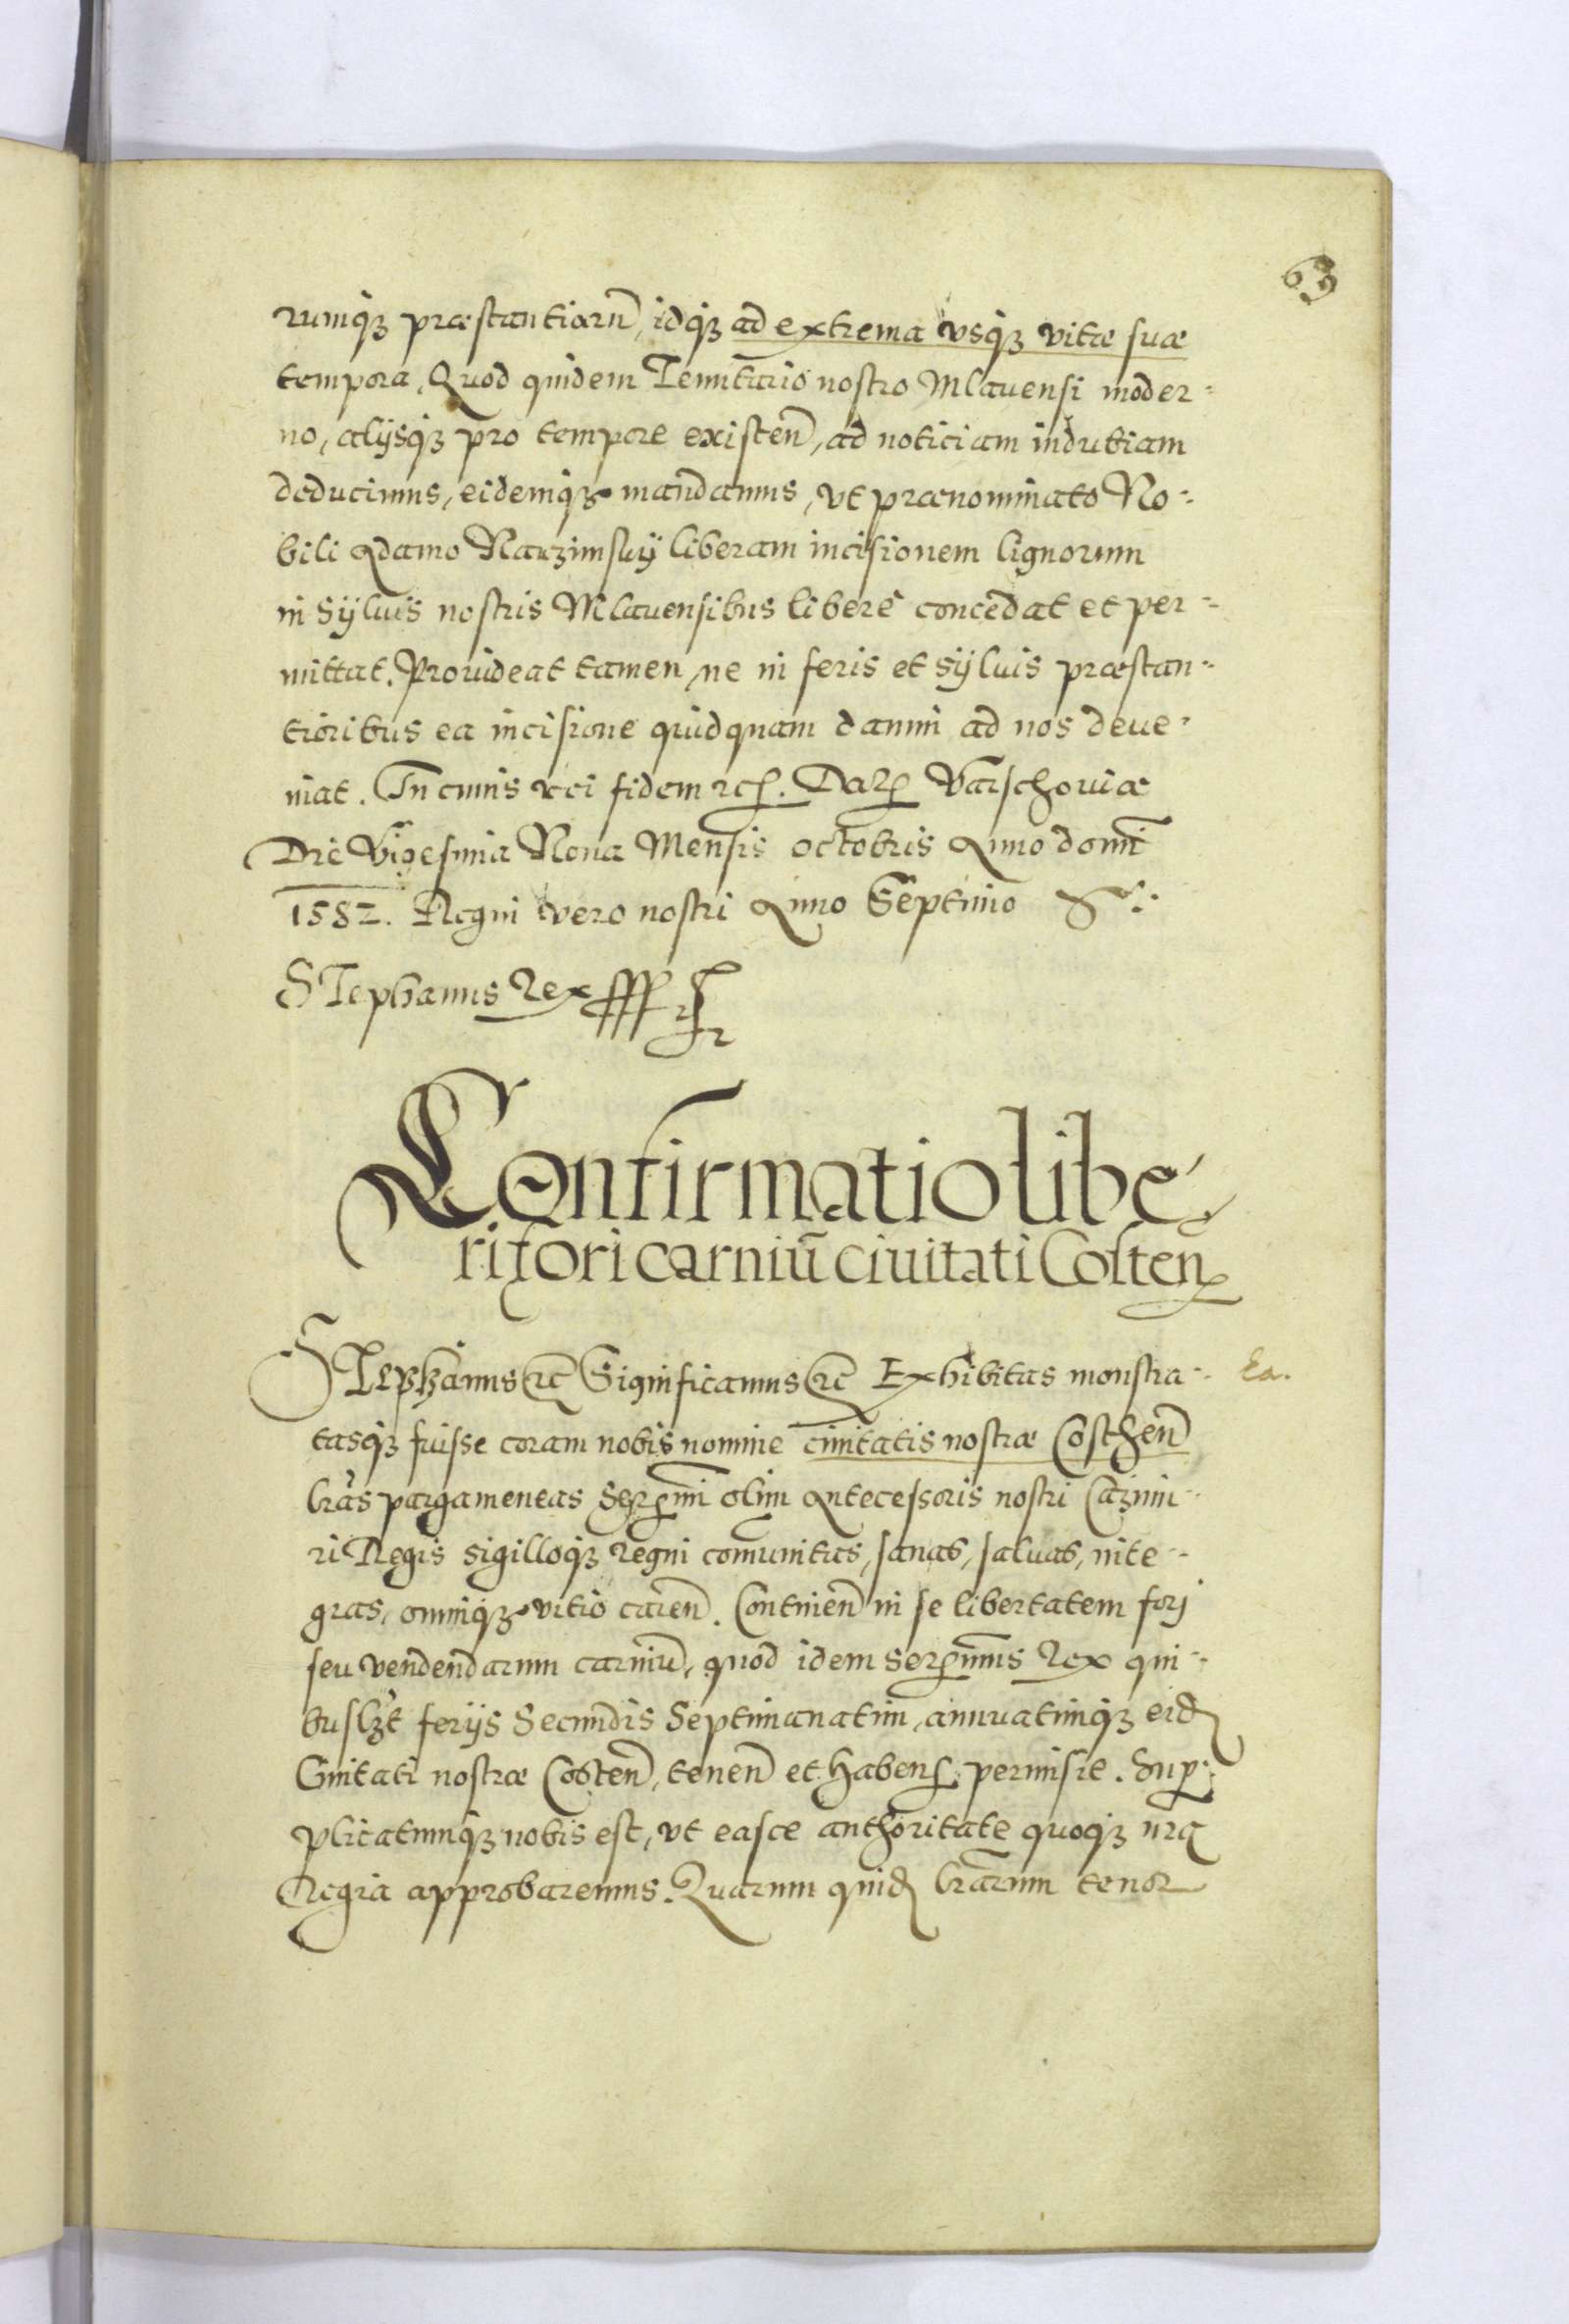 63
rumq3 præstantiorũ, idq3 ad extrema vsq3 vitæ suæ
tempora, Quod quidem Tenutario nostro Mlauensi moder-
no, alijsq3 pro tempore existen̄, ad noticiam indubiam
deducimus, eidemq3 mandamus, vt prænominato No-
bili Adamo Narzimsky liberam incisionem lignorum
in Syluis nostris Mlauensibus liberè concedat et per-
mittat. Prouideat tamen, ne in feris et Syluis præstan-
tioribus ea incisione quidquam damni ad nos deue-
niat. In cuius rei fidem rc. Dat Varschouiæ
Die Vigesima Nona Mensis octobris Anno domī
1582. Regni vero nostri Anno Septimo
Stephanus Rex
Confirmatio libe
ri fori carniū ciuitati Costen
Stephanus rc̄ Significamus rc̄ Exhibitas monstra- Ea.
tasq3 fuisse coram nobis nomine ciuitatis nostræ Costhen̄
lrās pargameneas Serm̄i olim Antecessoris nostri Cazimi-
ri Regis sigilloq3 regni com̄unitas, sanas, saluas, inte-
gras, omniq3 vitio caren̄. Continen̄ in se libertatem forj
seu vendendarum carniū, quod idem Serm̄us Rex qui-
buslz̄t ferijs Secundis Septimanatim, annuatimq3 eid
Ciuitati nostræ Costen̄, tenen̄ et haben permisit. Sup-
plicatumq3 nobis est, vt easce authoritate quoq3 nrā
Regia approbaremus. Quarum quid lrārum tenor